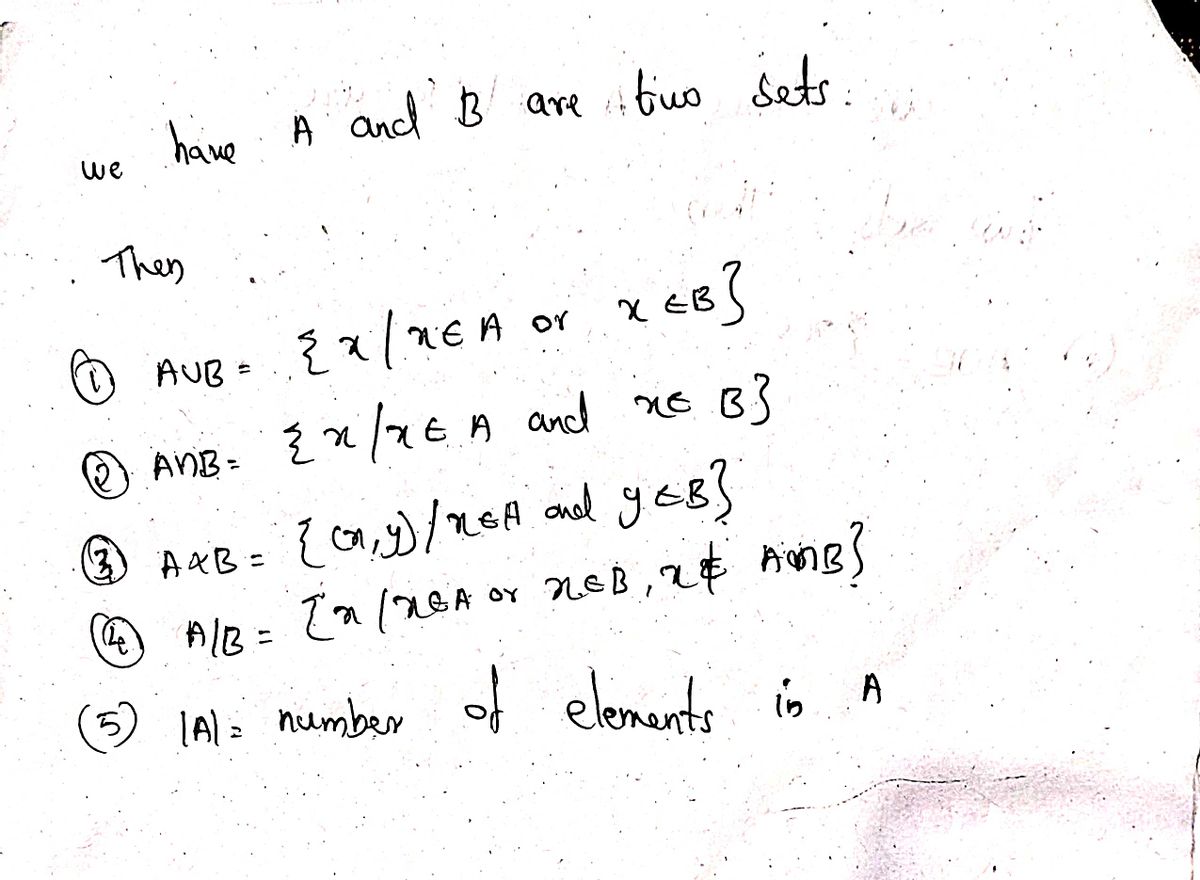 we have A and B are two sets.
Then
① A∪B = {x/x∈A or x∈B}
② A∩B = {x/x∈A and x∈B}
③ A×B = {(x,y)/x∈A and y∈B}
④ A/B = {x/x∈A or x∈B, x∉A∩B}
(5) |A| = number of elements in A